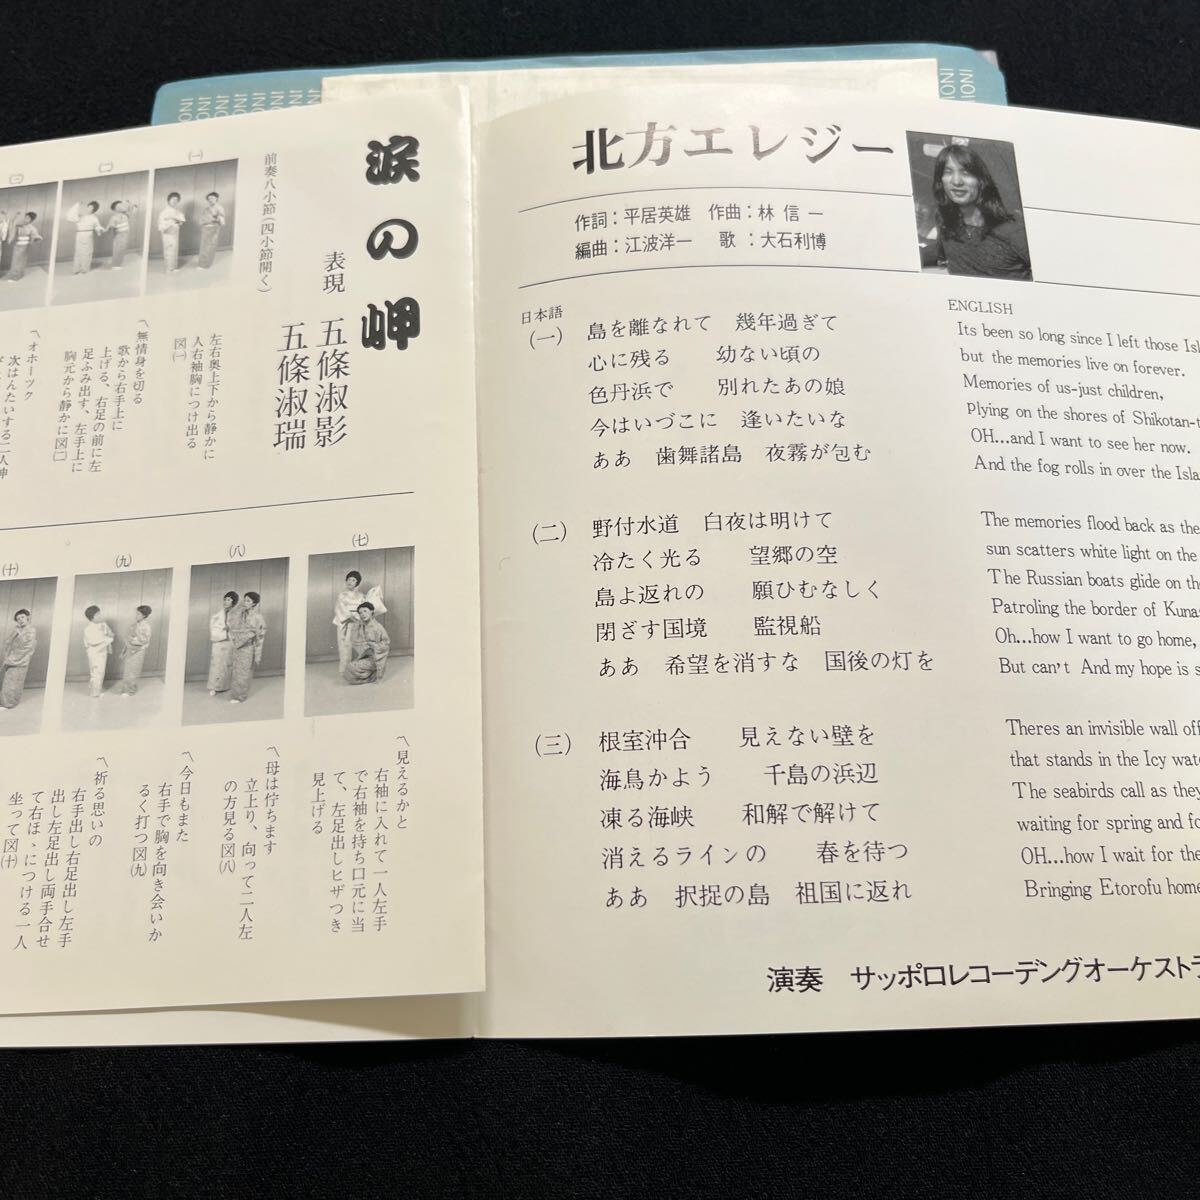 涙の岬
表現 五條淑影
五條淑瑞
前奏八小節(四小節開く)
(一)
(二)
(三)
左右奥上下から静かに
人右袖胸につけ出る
図(一)
〽無情身を切る
歌から右手上に
上げる、右足の前に左
足ふみ出す、左手上に
胸元から静かに図(二)
〽オホーツク
次はんたいする二人呻
(七)
(八)
(九)
(十)
〽見えるかと
右袖に入れて一人左手
で右袖を持ち口元に当
て、左足出しヒザつき
見上げる
〽母は佇ちます
立上り、向って二人左
の方見る図(八)
〽今日もまた
右手で胸を向き会いか
るく打つ図(九)
〽祈る思いの
右手出し右足出し左手
出し左足出し両手合せ
て右ほゝにつける一人
坐って図(十)
北方エレジー
作詞：平居英雄 作曲：林 信一
編曲：江波洋一 歌：大石利博
日本語
(一) 島を離なれて 幾年過ぎて
心に残る 幼ない頃の
色丹浜で 別れたあの娘
今はいづこに 逢いたいな
ああ 歯舞諸島 夜霧が包む
(二) 野付水道 白夜は明けて
冷たく光る 望郷の空
島よ返れの 願ひむなしく
閉ざす国境 監視船
ああ 希望を消すな 国後の灯を
(三) 根室沖合 見えない壁を
海鳥かよう 千島の浜辺
凍る海峡 和解で解けて
消えるラインの 春を待つ
ああ 択捉の島 祖国に返れ
ENGLISH
Its been so long since I left those Isl
but the memories live on forever.
Memories of us-just children,
Plying on the shores of Shikotan-t
OH...and I want to see her now.
And the fog rolls in over the Isla
The memories flood back as the
sun scatters white light on the
The Russian boats glide on the
Patroling the border of Kunas
Oh...how I want to go home,
But can't And my hope is s
Theres an invisible wall off
that stands in the Icy wat
The seabirds call as they
waiting for spring and fo
OH...how I wait for the
Bringing Etorofu home
演奏 サッポロレコーデングオーケストラ